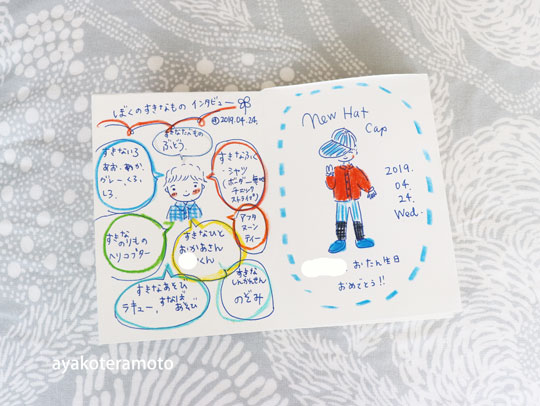 ぼくのすきなもの インタビュー
2019.04.24.
すきなたべもの
ぶどう
すきないろ
あお、あか、
グレー、くろ、
しろ
すきなふく
・シャツ
(ボーダー、無地
チェック
ストライプ)
アフタ
ヌーン
ティー
すきな
のりもの
ヘリコプター
すきなひと
おかあさん
くん
すきなあそび
ラキュー、すなば
あそび
すきな
しんかんせん
のぞみ
New Hat
Cap
2019.
04.
24.
Wed.
おたん生日
おめでとう!!
ayakoteramoto